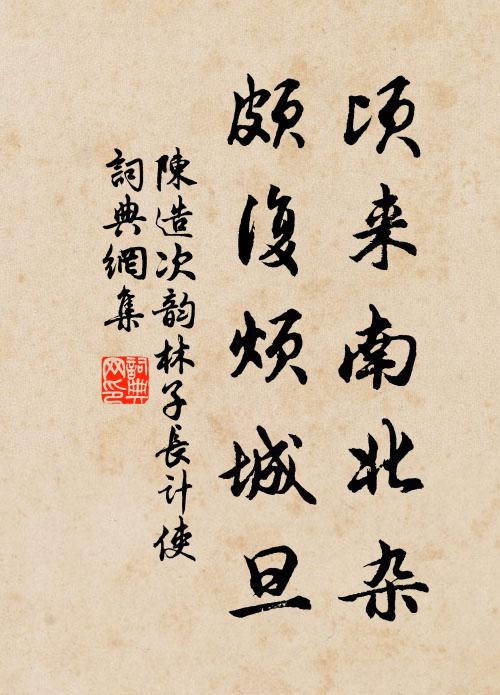 顷来南北杂
颇復烦城旦
陳造次韵林子長计使
詞典網集
詞典
网印